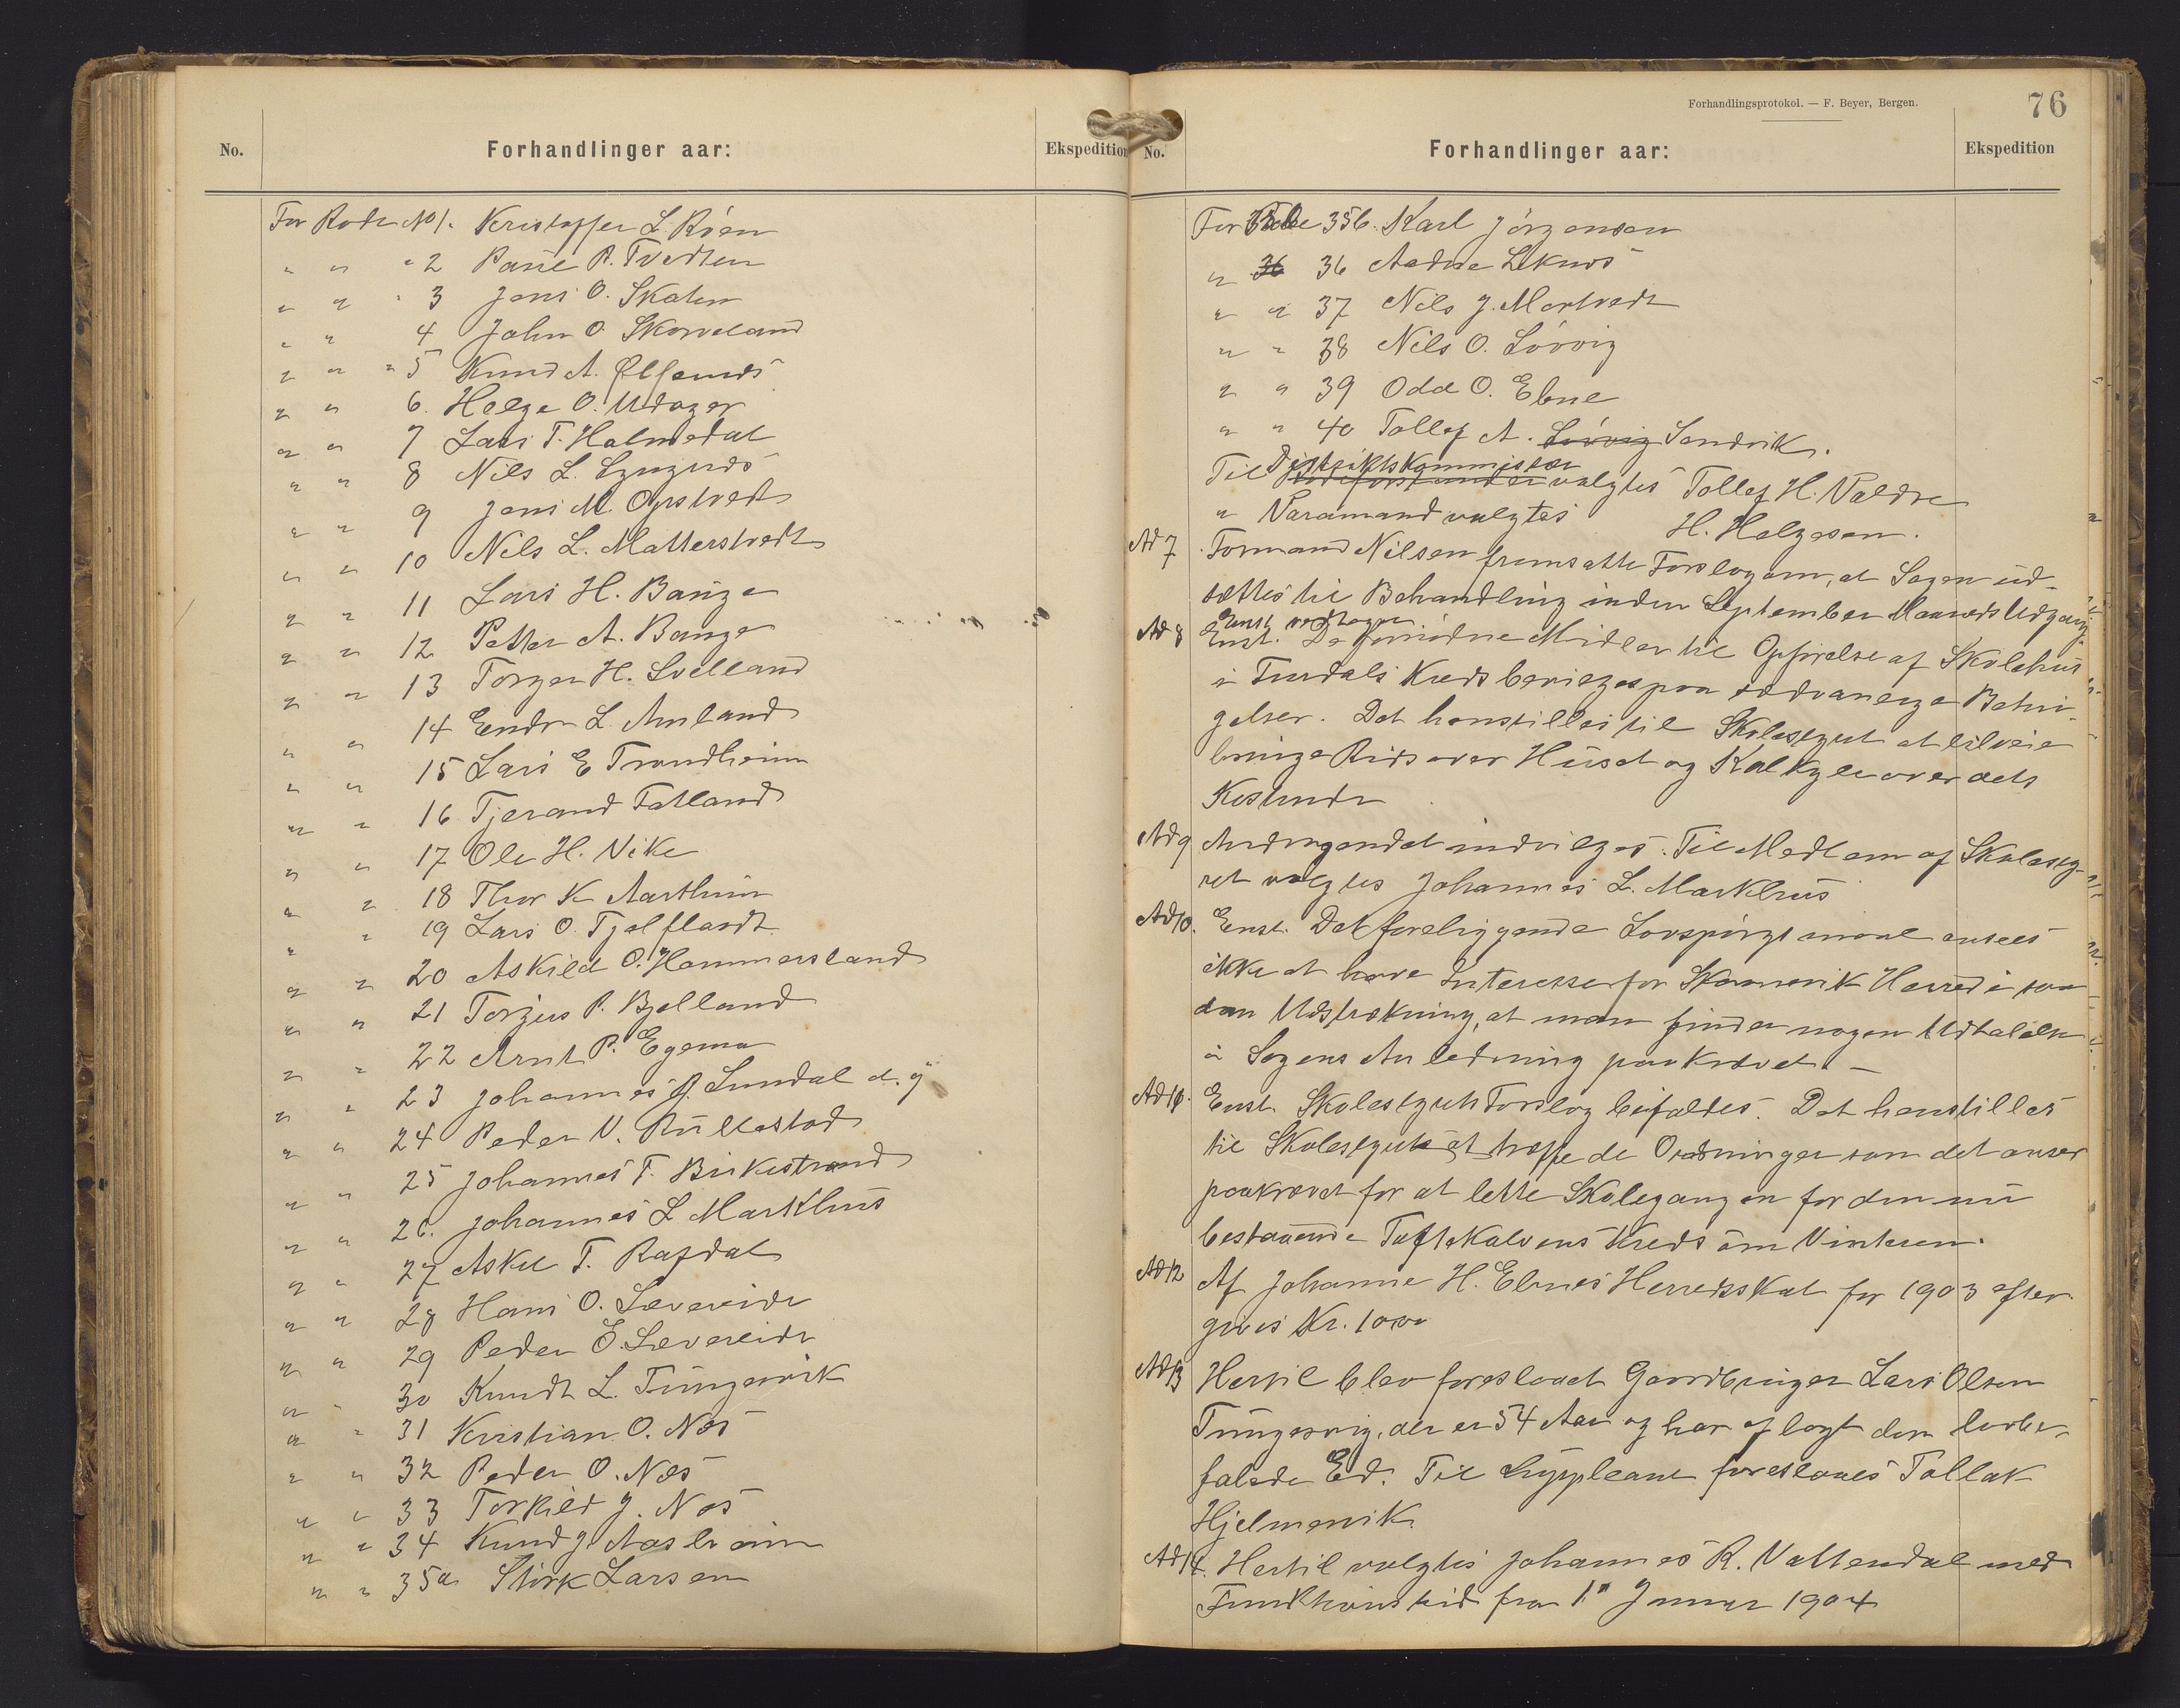 No.
Forhandlinger aar:
Ekspedition
For Rode No 1. Kristoffer L. Røen
" " " 2 Paul P. Tvedten
" " " 3 Jens O. Skalen
" " 4 John O. Skorveland
" " " 5 Knud A. Ølfernæs
" " 6. Helge O. Udager
" " 7 Lars T. Holmedal
" " 8 Nils L. Lyngnæs
" " 9 Jens M. Opstvedt
" " 10 Nils L. Matterstvedt
" " 11 Lars H. Bauge
" " 12 Petter A. Bauge
" " 13 Torger H. Svelland
" " 14 Endre L. Amland
" " 15 Lars E Trondheim
" " 16 Tjerand Fatland
" " 17 Ole H. Vike
" " 18 Thor K Aarthun
" " 19 Lars O. Tjelflaadt
" " 20 Askild O. Hammersland
" " 21 Torgius P. Bjelland
" " 22 Arnt P. Egema
" " 23 Johannes J. Sundal d. y
" " 24 Peder V. Rullestad
" " 25 Johannes T. Birkestrand
" " 26. Johannes L Markhus
" " 27 Askil T. Rafdal
" " 28 Hans O. Sævereide
" " 29 Peder O. Sævereide
" " 30 Knudt L. Tungesvik
" " 31 Kristian O. Næs
" " 32 Peder O. Næs
" " 33 Torkild J. Næs
" " 34 Knud J Aasheim
" " 35a Størk Larsen
Forhandlingsprotokol. — F. Beyer, Bergen.
76
No.
Forhandlinger aar:
Ekspedition
For Rode 35b. Karl Jörgensen
" 36 36 Aadne Leknæs
" " 37 Nils J. Mortvedt
" " 38 Nils O. Løvvig
" " 39 Odd O. Ebne
" " 40 Tollef A. Løvvig Sandvik.
Distriktskommissær
Til Rodeforstander valgtes Tollef H. Valdre
" Varamand valgtes H. Helgesen.
Ad 7 Formand Nilsen fremsatte Forslag om, at Sagen ud-
sættes til Behandling inden September Maaneds Udgang.
Enst. vedtages
Ad 8 Enst. De fornødne Midler til Opførelse af Skolehus
i Tindals Kreds bevilges paa sædvanlige Betin-
gelser. Det henstilles til Skolestyret at tilveie
bringe Rids over Huset og Kalkyle over dets
Kostende
Ad 9 Andragendet indvilges. Til Medlem af Skolesty-
ret valgtes Johannes L. Markhus
Ad 10. Enst. Det foreliggende Lovspörgsmaal ansees
ikke at have Interesse for Skaanevik Herred i saa
dan Udstrækning, at man finder nogen Udtalelse
i Sagens Anledning paakrævet. —
Ad 11. Enst. Skolestyrets Forslag bifaldes. Det henstilles
til Skolestyret at træffe de Ordninger som det anser
paakrævet for at lette Skolegangen for den nu
bestaaende Toftekalvens Kreds om Vinteren.
Ad 12 Af Johanne H. Ebnes Herredsskat for 1903 efter-
gives Kr. 10.00
Ad 13 Hertil blev foreslaaet Gaardbruger Lars Olsen
Tungesvig, der er 54 Aar og har aflagt den lovbe-
falede Ed. Til Suppleant foreslaaes Tollak
Hjelmevik.
Ad 14. Hertil valgtes Johannes R. Vattendal med
Funktionstid fra 1" Januar 1904